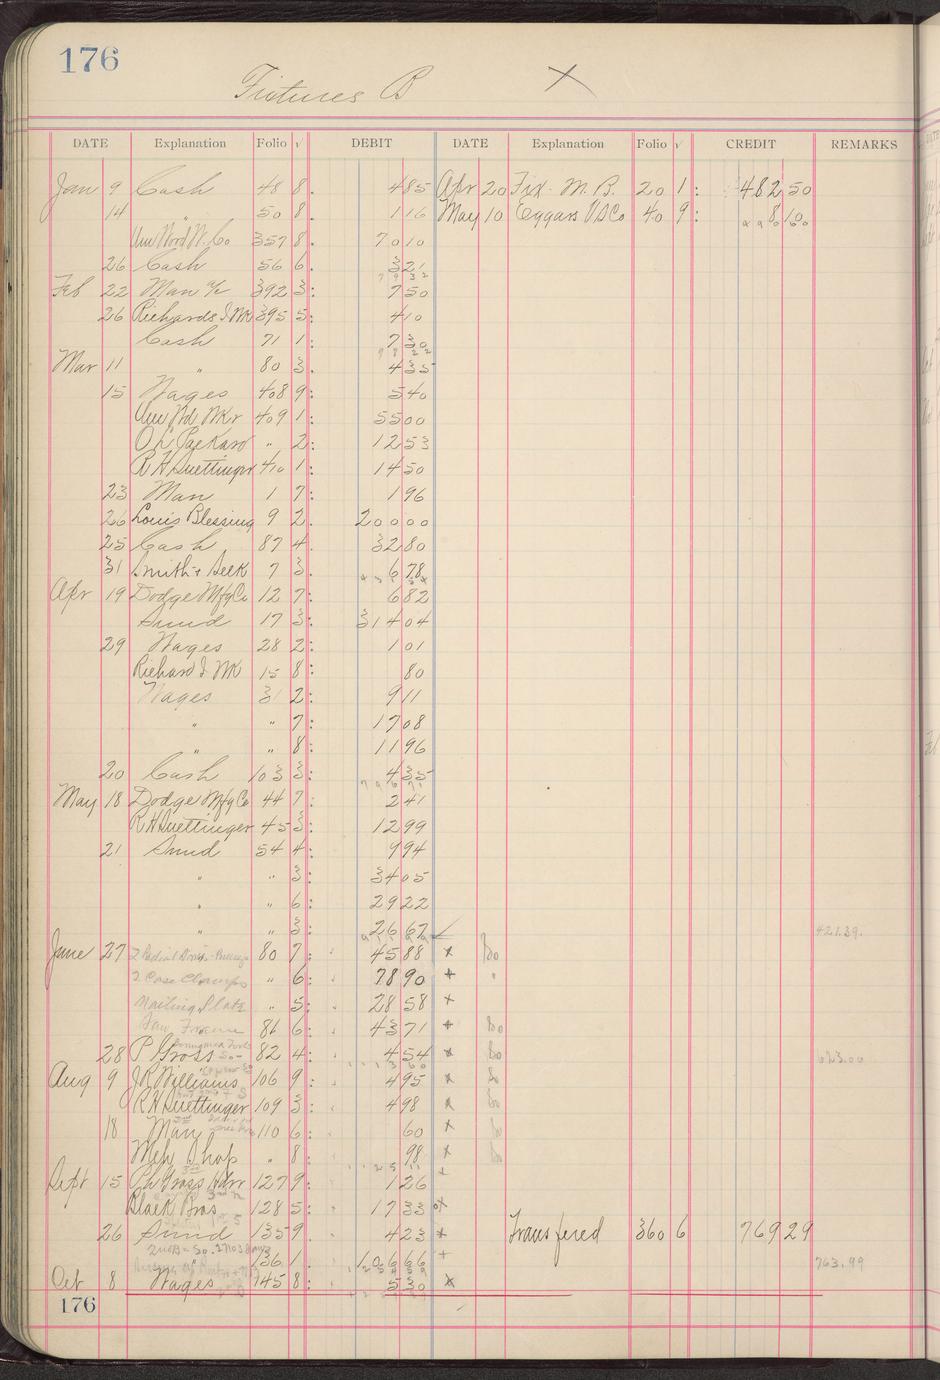 176
Fixtures B X
DATE Explanation Folio √ DEBIT DATE Explanation Folio √ CREDIT REMARKS
Jan 9 Cash 48 8. 4 85 Apr 20 Fix. M. B. 20 1: 482 50
14 " 50 8. 1 16 May 10 Eggars V S Co 40 9: 8 10
Am Wood W. Co 357 8. 70 10
26 Cash 56 6. 3 21
Feb 22 Man 392 3: 7 50
26 Richards I Wk 395 5: 4 10
Cash 71 1: 7 30
Mar 11 " 80 3. 4 35
15 Wages 408 9: 5 40
Am Wd Wkr 409 1: 55 00
O L Packard " 2: 12 53
R H Suettinger 410 1: 14 50
23 Man 1 7: 1 96
26 Louis Blessing 9 2. 200 00
25 Cash 87 4. 32 80
31 Smith + Seek 7 3. 6 78
Apr 19 Dodge Mfg Co 12 7: 6 82
Sund 17 3: 314 04
29 Wages 28 2: 1 01
Richard I Wk 15 8: 80
Wages 31 2: 9 11
" " 7: 17 08
" " 8: 11 96
20 Cash 103 3: 4 35
May 18 Dodge Mfg Co 44 7: 2 41
R H Suettinger 45 3: 12 99
21 Sund 54 4: 9 94
" " 3: 34 05
" " 6: 29 22
" " 3: 26 67
421.39.
June 27 80 7: 45 88 x
2 Case Clamps " 6: 78 90 + "
Nailing Slate " 5: 28 58 x
Saw Frame 81 6: 43 71 +
28 P Gross 82 4: 4 54 x 623.00
Aug 9 J R Williams 106 9: 4 95 x
R H Suettinger 109 3: 4 98 x
18 Man 110 6: 60 x
Meh Shop " 8: 98 x
Sept 15 Ph Gross Hdw 127 9 1 26 +
Black Bros 128 5: 17 33 x
26 Sund 135 9. 4 23 x Transfered 360 6 769 29
136 1. 106 66 + 763.99
Oct 8 Wages 145 8: 5 30 x
176